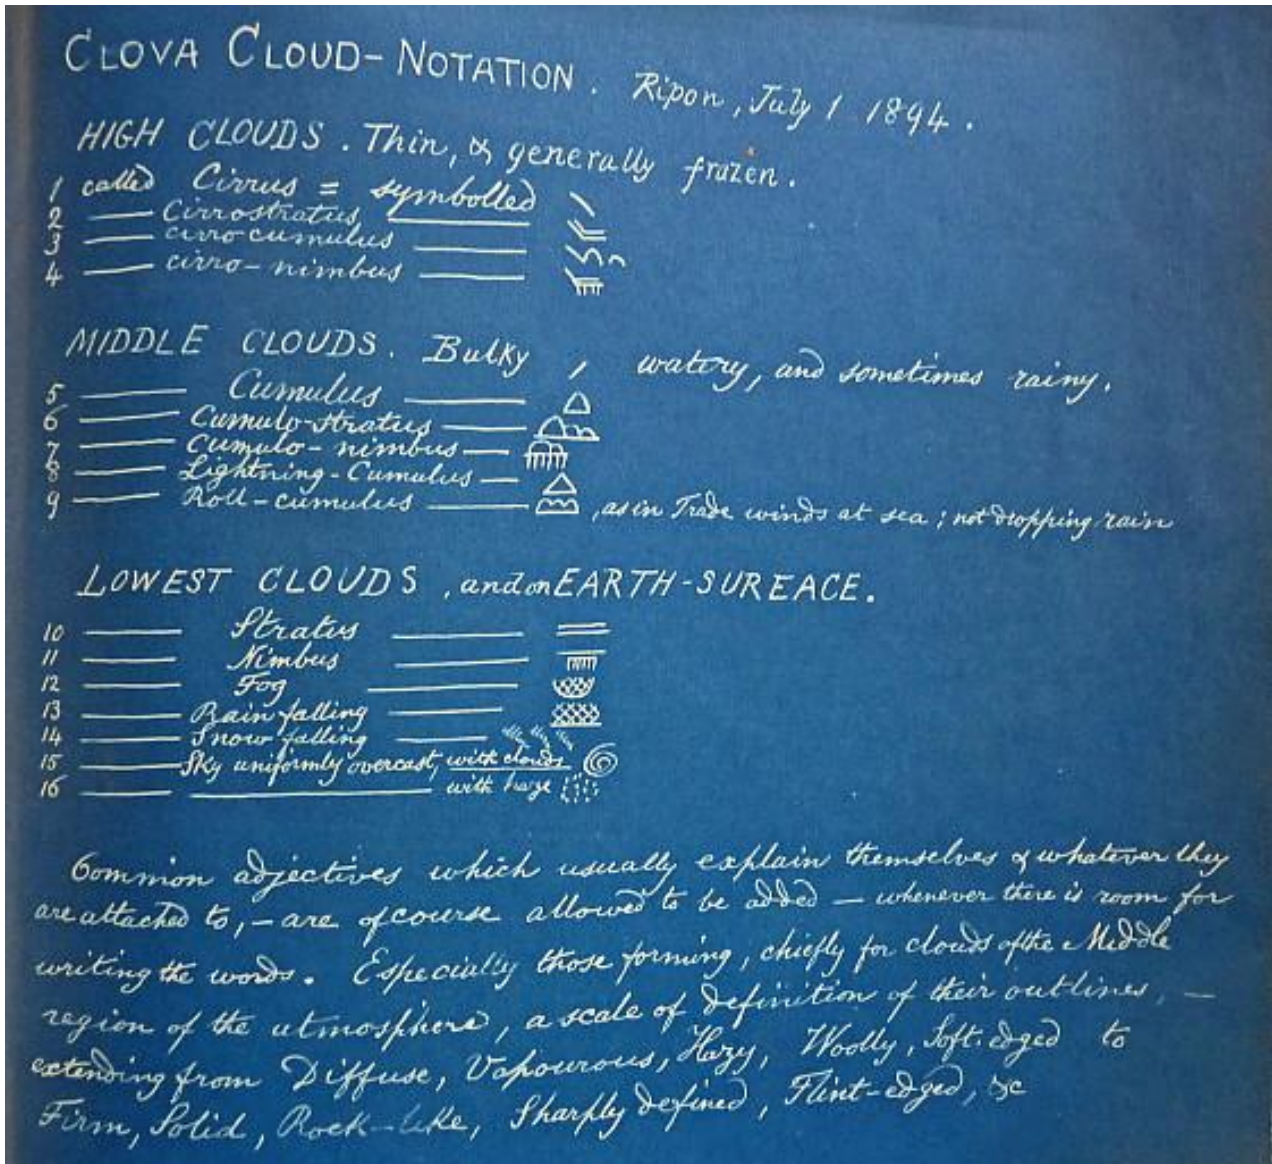 CLOVA CLOUD-NOTATION. Ripon, July 1 1894.
HIGH CLOUDS. Thin, & generally frozen.
1 called Cirrus = symbolled
2 —— Cirrostratus ——
3 —— cirrocumulus ——
4 —— cirro-nimbus ——
MIDDLE CLOUDS. Bulky, watery, and sometimes rainy.
5 —— Cumulus ——
6 —— Cumulo-stratus ——
7 —— Cumulo-nimbus —
8 —— Lightning-Cumulus —
9 —— Roll-cumulus —— , as in Trade winds at sea; not dropping rain
LOWEST CLOUDS, and on EARTH-SUREACE.
10 —— Stratus ——
11 —— Nimbus ——
12 —— Fog ——
13 —— Rain falling ——
14 —— Snow falling ——
15 —— Sky uniformly overcast, with clouds
16 —— —— with haze
Common adjectives which usually explain themselves & whatever they
are attached to, — are of course allowed to be added — whenever there is room for
writing the words. Especially those forming, chiefly for clouds of the Middle
region of the atmosphere, a scale of definition of their outlines, —
extending from Diffuse, Vapourous, Hazy, Woolly, Soft-edged to
Firm, Solid, Rock-like, Sharply defined, Flint-edged, &c